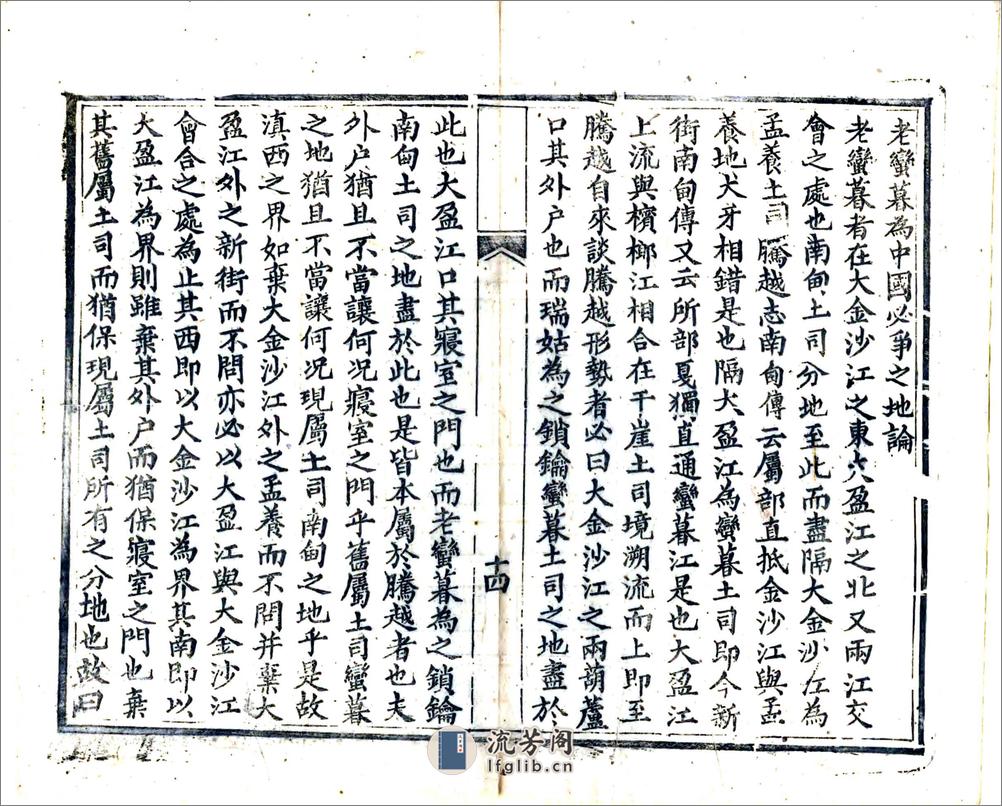 老蠻暮為中國必爭之地論
老蠻暮者在大金沙江之東大盈江之北又兩江交
會之處也南甸土司分地至此而盡隔大金沙江為
孟養土司騰越志南甸傳云屬部直抵金沙江與孟
養地犬牙相錯是也隔大盈江為蠻暮土司即今新
街南甸傳又云所部戛獨直通蠻暮江是也大盈江
上流與檳榔江相合在干崖土司境溯流而上即至
騰越自來談騰越形勢者必曰大金沙江之兩葫蘆
口其外户也而瑞姑為之鎖鑰蠻暮土司之地盡於
十四
此也大盈江口其寢室之門也而老蠻暮為之鎖鑰
南甸土司之地盡於此也是皆本屬於騰越者也夫
外户猶且不當讓何况寢室之門乎舊屬土司蠻暮
之地猶且不當讓何况現屬土司南甸之地乎是故
滇西之界如棄大金沙江外之孟養而不問并棄大
盈江外之新街而不問亦必以大盈江與大金沙江
會合之處為止其西即以大金沙江為界其南即以
大盈江為界則雖棄其外户而猶保寢室之門也棄
其舊屬土司而猶保現屬土司所有之分地也故曰
流芳阁
lfglib.cn